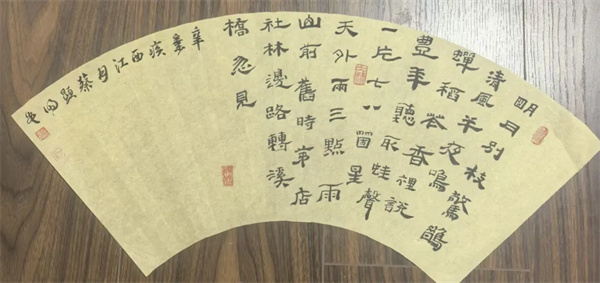 明月別枝驚鵲
清風半夜鳴
蟬稻花香裡說
豊年聽取蛙聲
一片七八箇星
天外兩三點雨
山前舊時茅店
社林邊路轉溪
橋忽見
辛棄疾西江月蔡顕